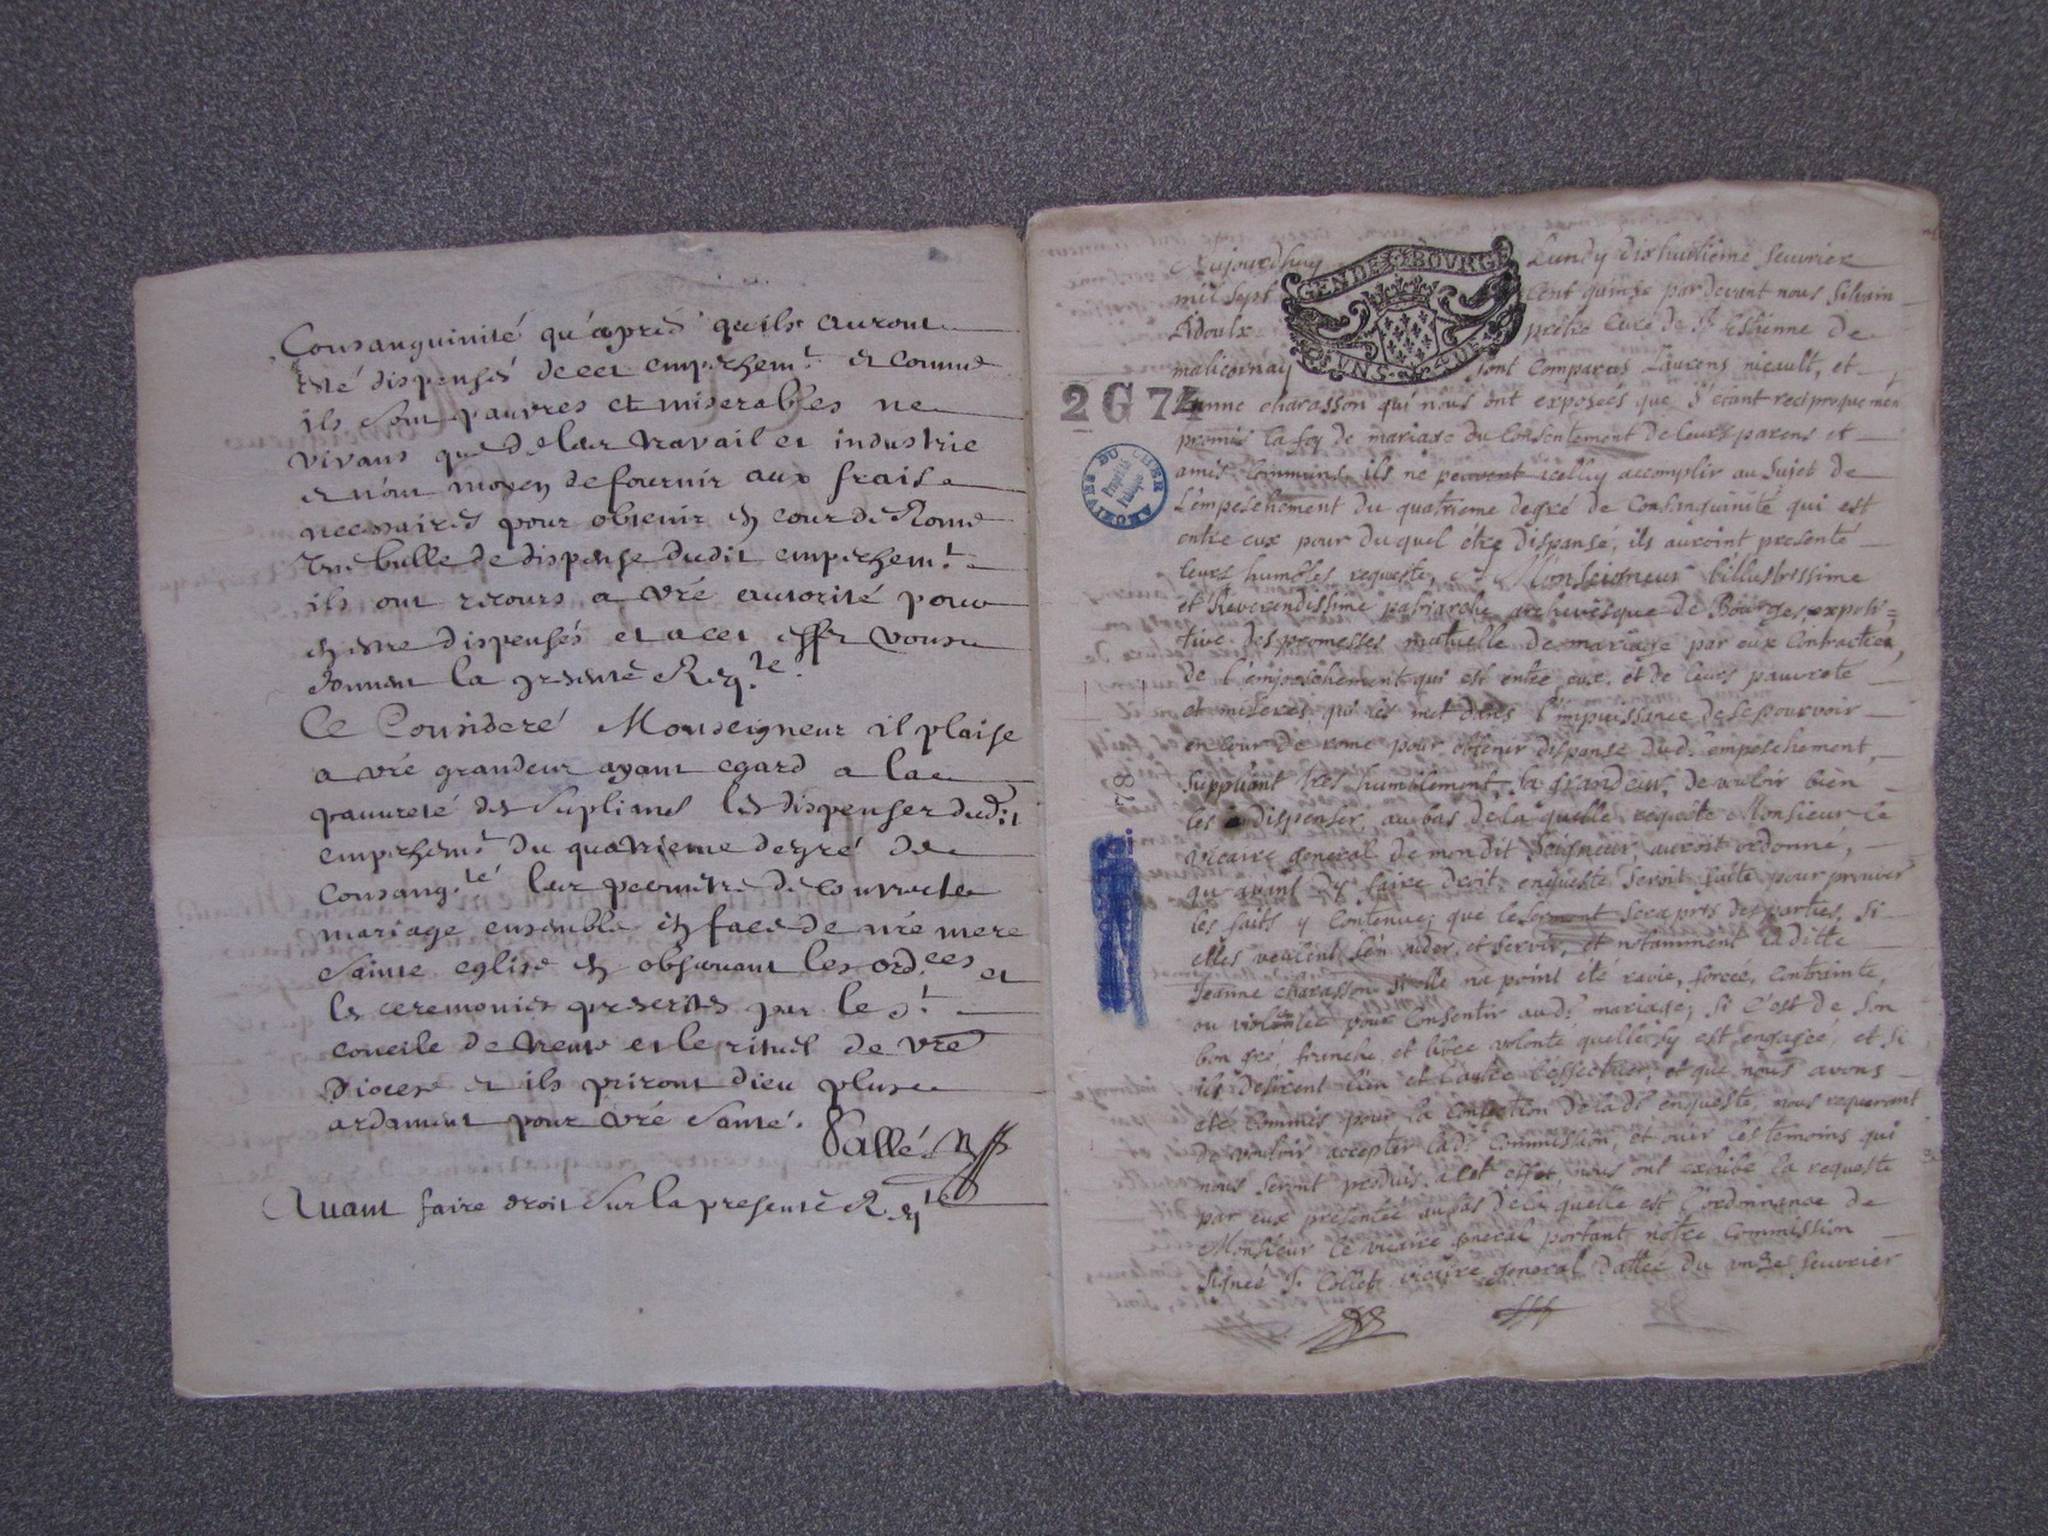 Consanguinité qu'apres qu'ils auront
esté dispensés de cet empeschemt. et comme
ils sont pauvres et miserables ne
vivans que de leur travail et industrie
et n'ont moyen de fournir aux frais
necessaires pour obtenir en cour de Rome
une bulle de dispense dudit empeschemt.
ils ont recours a vre autorité pour
en estre dispensés et a cet effet vous
donnent la presente Reqte.
Ce Consideré Monseigneur il plaise
a vre grandeur ayant egard a la
pauvreté des supliants les dispenser dudit
empeschemt du quatrieme degré de
Consangté leur permettre de contracter
mariage ensemble en face de nre mere
Sainte eglise en observant les ordces et
les ceremonies prescrites par le st.
concile de trente et le rituel de vre
Diocese et ils priront dieu plus
ardament pour vre santé.
Vallé
Avant faire droit sur la presente Reqte
Aujourdhuy Lundy dix huitieme feuvrier
mil sept cent quinze par devant nous Silvain
Ridoulx prêtre curé de St Estienne de
malicornay sont comparus Laurens nicault, et
Jeanne charasson qui nous ont exposés que s'étant reciproquemen
promis la foy de mariage du consentement de leurs parens et
amis communs, ils ne peuvent icelluy accomplir au sujet de
L'empeschement du quatrieme degré de Consanguinité qui est
entre eux pour du quel étre dispansé, ils auroint presenté
leurs humbles requeste, a Monseigneur L'illustrissime
et Reverendissime patriarche archevesque de Bourges, expositi=
tive des promesses mutuelle de mariage par eux Contractées,
de l'empeschement qui est entre eux, et de leurs pauvreté
et miseres qui les met dans l'impuissance de se pourvoir
en cour de rome pour obtenir dispanse dud. empeschement,
suppliant tres humblement, sa grandeur, de vouloir bien
les dispenser, au bas de la quelle requeste Monsieur le
vicaire general de mon dit Seigneur, auroit ordonné,
qu'avant dy faire droit, enqueste seroit faite pour prouver
les faits y contenue; que le serment sera pris des parties, si
elles veulent s'en aider, et servir, et notamment laditte
Jeanne charasson si elle na point été ravie, forcée, contrainte,
ou violentée pour Consentir aud. mariage; si c'est de son
bon gré, franche, et libre volonté quelle sy est engagée, et si
ils desirent l'un et l'autre l'effectuer, et que nous avons
eté commis pour la confection de lad. enqueste, nous requerant
de vouloir accepter lad. Commission, et ouir les temoins qui
nous seront produis a cet effet, nous ont exhibé la requeste
par eux presentée au bas de la quelle est l'ordonnance de
Monsieur le vicaire general portant notre Commission
signée J. Collet vicaire general dattée du unze feuvrier
GEN DE BOURGE
2 G 74
ARCHIVES DU CHER
Propriété
Publique